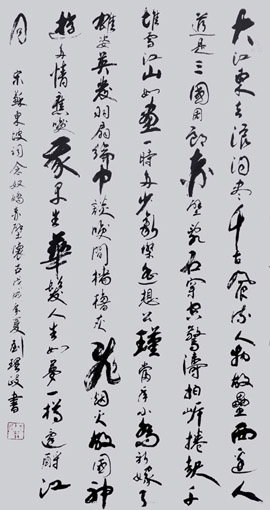 大江東去浪淘盡千古風流人物故壘西邊人
道是三國周郎赤壁亂石穿空驚濤拍岸捲起千
堆雪江山如畫一時多少豪傑遙想公瑾當年小喬初嫁了
雄姿英發羽扇綸巾談笑間檣櫓灰飛烟滅故國神
遊多情應笑我早生華髮人生如夢一樽還酹江
月
宋蘇東坡詞念奴嬌赤壁懷古 年夏劉 政書